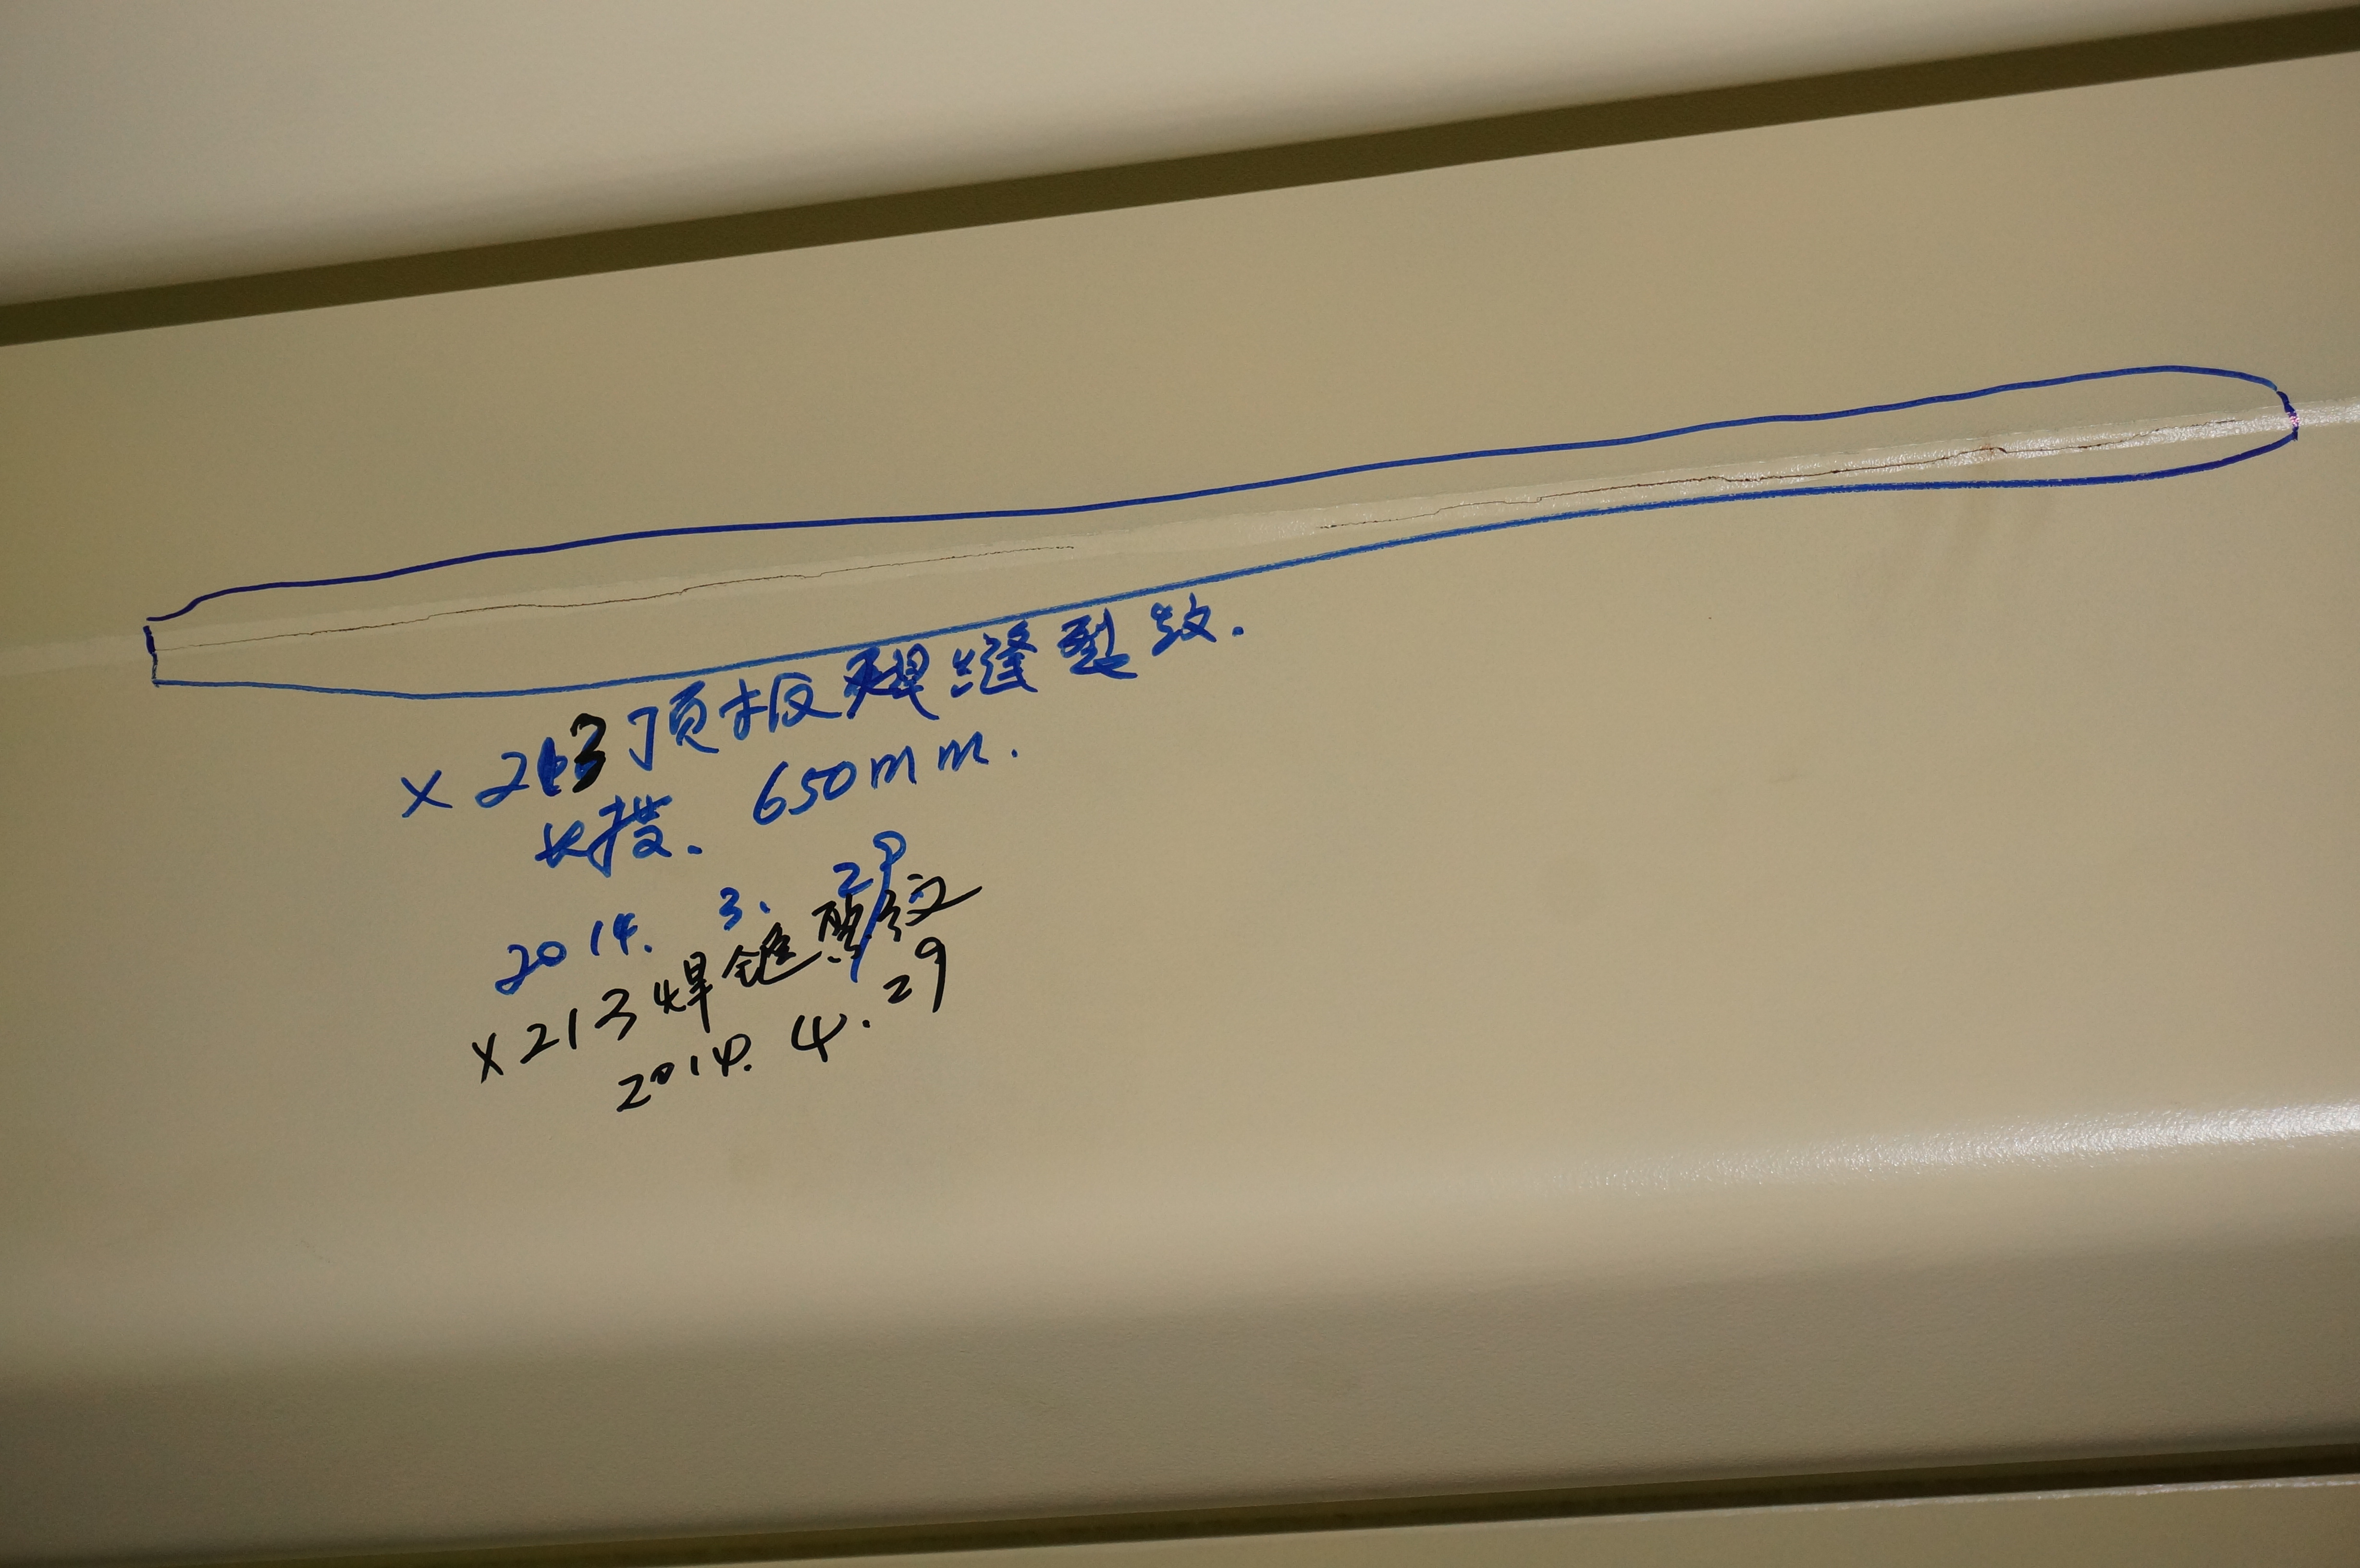 ×213顶板焊缝裂纹.
长度. 650mm.
2014. 3. 29
×213焊缝裂纹
2014. 4. 29